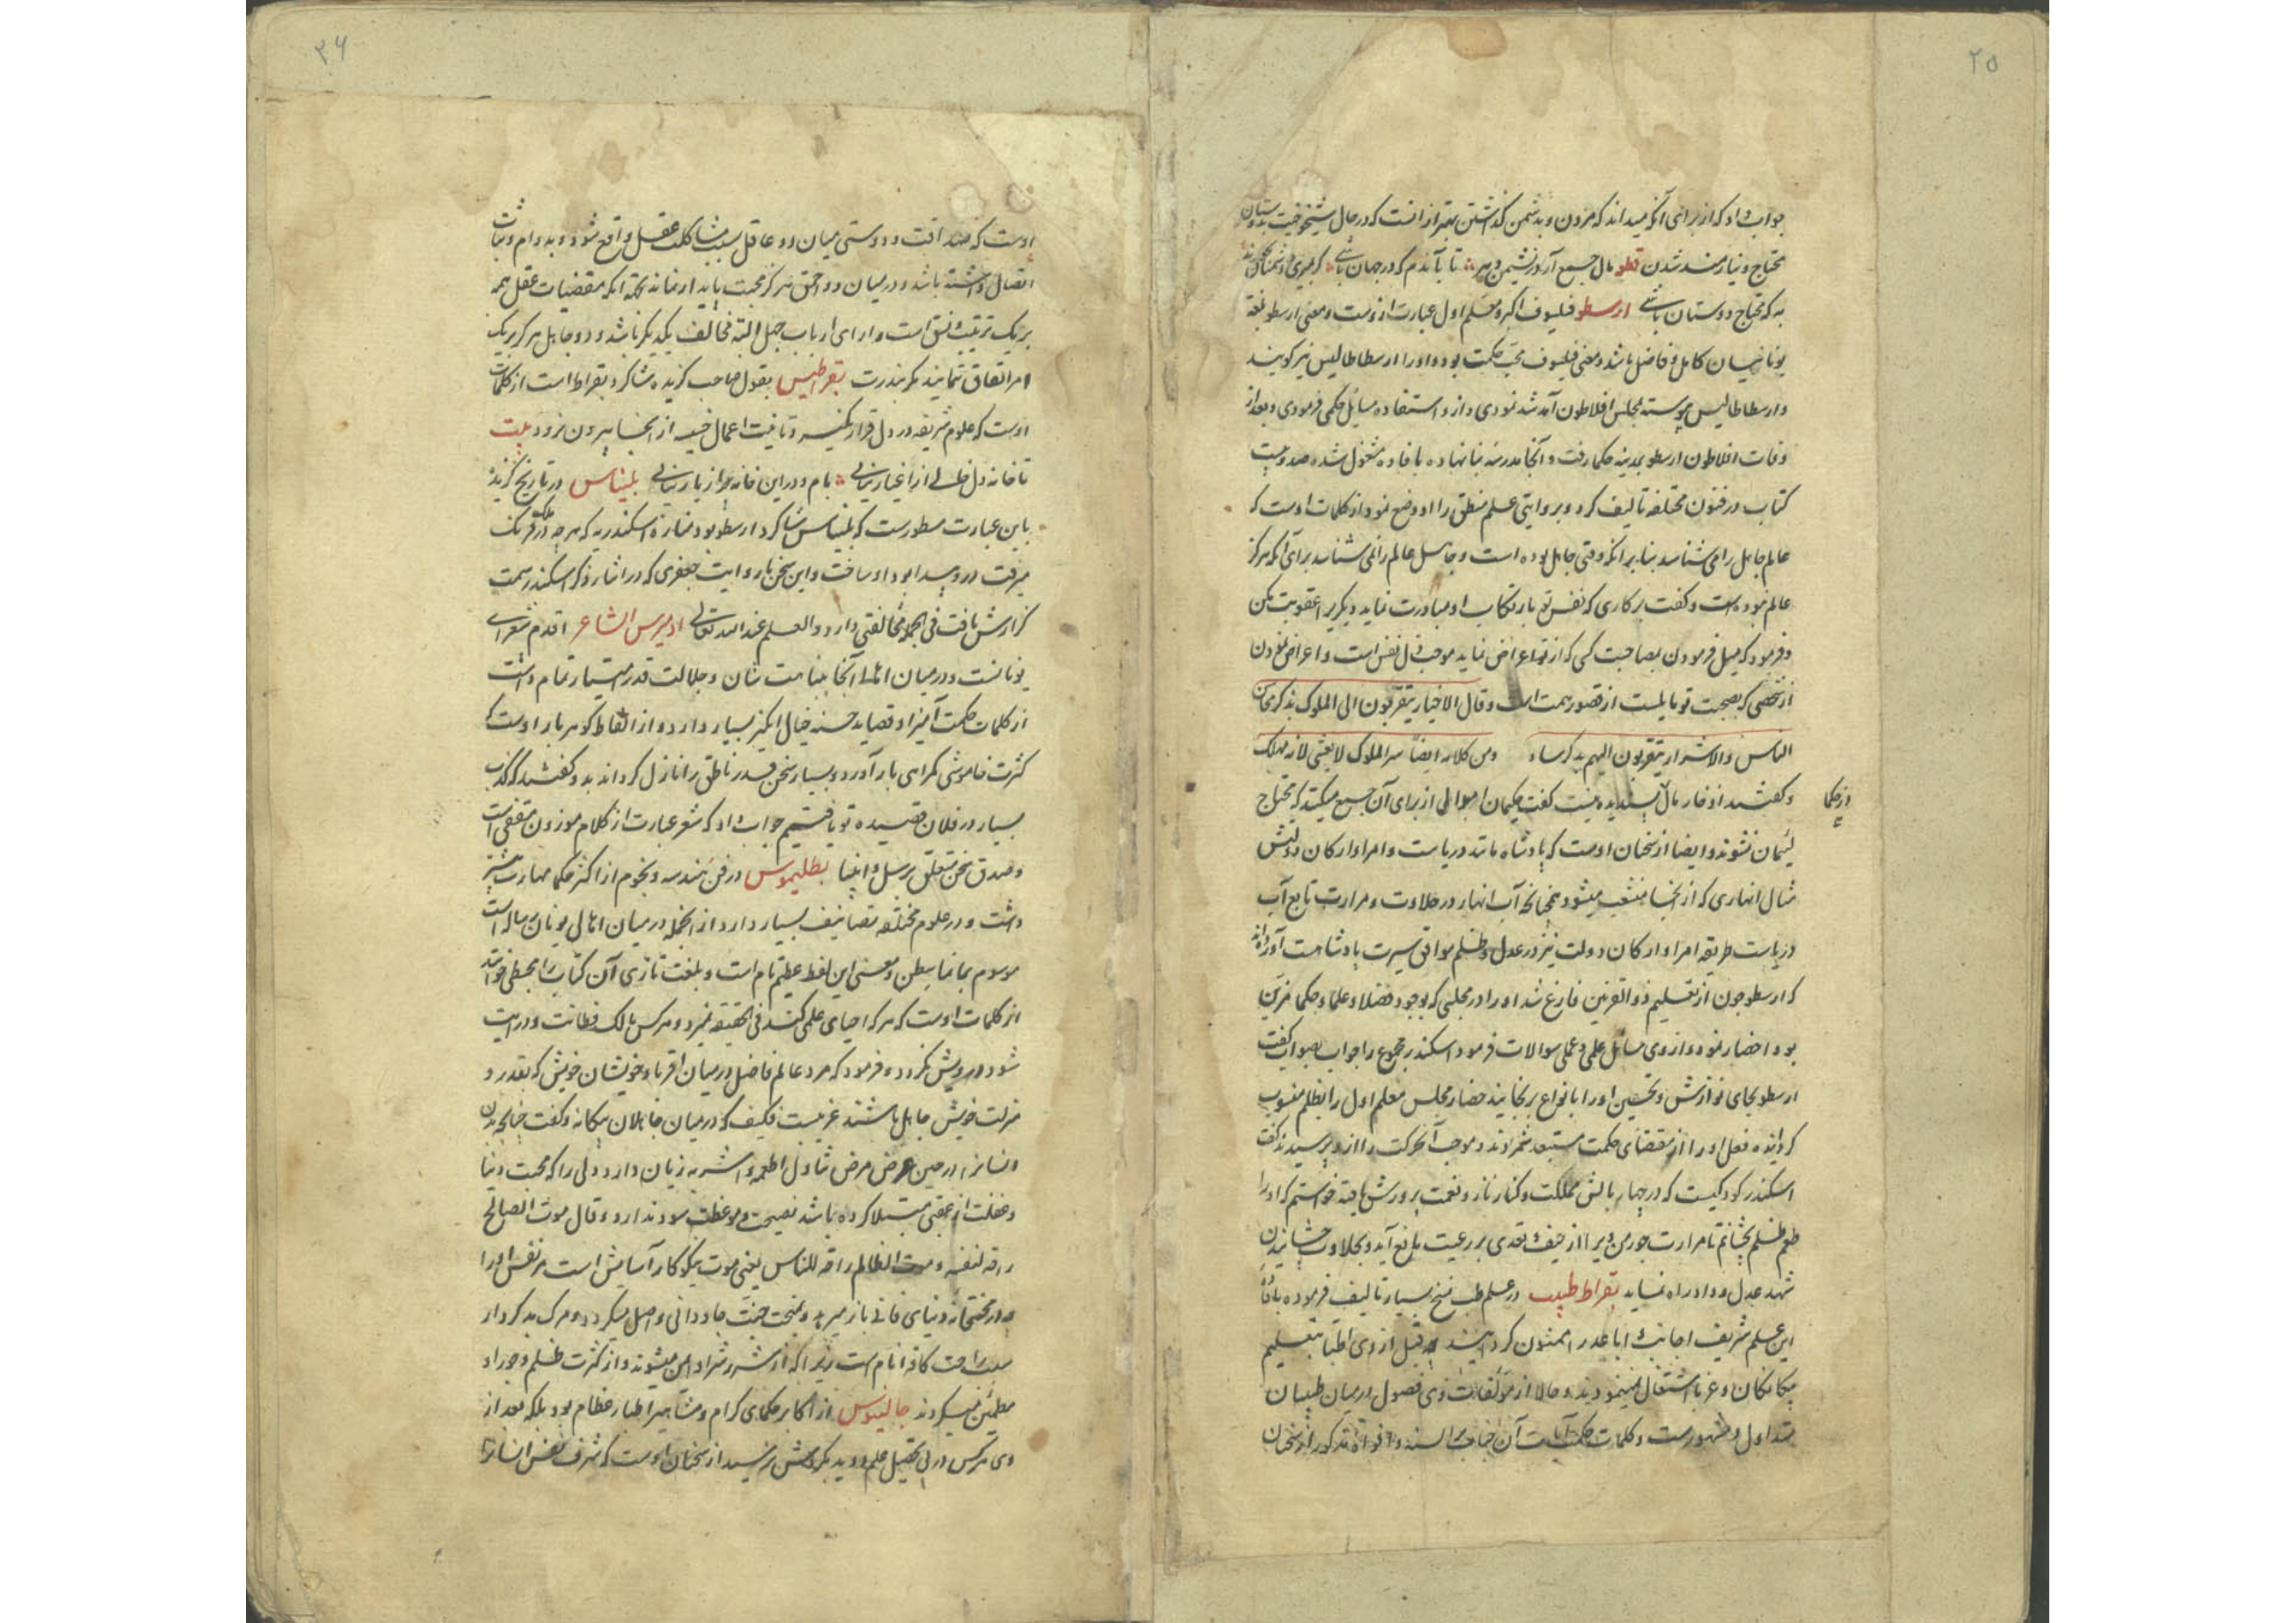 ۲۵
جواب داد که از برای آنکه میداند که مردن و بدشمن گذاشتن بهتر از انست که در حال شیخوخیت بدوستان
محتاج و نیازمند شدن قطعه مال جمع آر در نشیمن دهر تا بآندم که در جهان باشی گر بمیری و دشمنان بخورند
به که محتاج دوستان باشی ارسطو فیلسوف اکبر و معلم اول عبارت ازوست و معنی ارسطو بلغة
یونانیان کامل و فاضل باشد و معنی فیلسوف محب حکمت بود و او را ارسطاطالیس نیز گویند
و ارسطاطالیس پیوسته بمجلس افلاطون آمد شد نمودی و ازو استفاده مسایل حکمی فرمودی و بعد از
وفات افلاطون ارسطو بمدینه حکما رفت و آنجا مدرسه بنا نهاده بافاده مشغول شده صد و بیست
کتاب در فنون مختلفه تالیف کرد و بروایتی علم منطق را او وضع نمود از کلمات اوست که
عالم جاهل را می شناسد بنا بر انکه وقتی جاهل بوده است و جاهل عالم را نمی شناسد برای آنکه هرگز
عالم نبوده است و گفت بر کاری که نفس تو بارتکاب او مبادرت نماید دیگریرا عقوبت مکن
و فرمود که میل فرمودن بمصاحبت کسی که از تو اعراض نماید موجب ذل نفس است و اعراض نمودن
از شخصی که بصحبت تو مایلست از قصور همت است و قال الاخیار یتقربون الی الملوک بذکر محاسن
الناس والاشرار یتقربون الیهم بذکر مساو ومن کلامه ایضا سر الملوک لا یفشی لانه مهلک
و گفتند ادخار مال پسندیده نیست گفت حکیمان اموال از برای آن جمع میکنند که محتاج
از حکما
لئیمان نشوند و ایضا از سخنان اوست که پادشاه مانند دریاست و امرا و ارکان دولتش
مثال انهاری که از انجا منشعب میشود همچنانکه آب انهار در حلاوت و مرارت تابع آب
دریاست طریقه امرا و ارکان دولت نیز در عدل و ظلم موافق سیرت پادشاهست آورده اند
که ارسطو چون از تعلیم ذو القرنین فارغ شد او را در مجلسی که بوجود فضلا و علما و حکما مزین
بود احضار نمود و از وی مسائل علمی و عملی سوالات فرمود اسکندر مجموع را جواب بصواب گفت
ارسطو بجای نوازش و تحسین او را بانواع برنجانید حضار مجلس معلم اول را بظلم منسوب
گردانیده فعل او را از مقتضای حکمت مستبعد شمردند و موجب آن حرکت را از و پرسیدند گفت
اسکندر کودکیست که در چهار بالش مملکت و کنار ناز و نعمت پرورش یافته خواستم که او را
طعم ظلم بچشانم تا مرارت جور من ویرا از حیف و تعدی بر رعیت مانع آید و بحلاوت چشانیدن
شهد عدل و داد راه نماید بقراط طبیب در علم طب نسخ بسیار تالیف فرموده بافادهٔ
این علم شریف اجانب و اباعد را ممنون گردانید چه قبل از وی اطبا بتعلیم
بیگانگان و غربا اشتغال نمینمودند و حالا از مؤلفات وی فصول در میان طبیبان
متداول و مشهورست و کلمات حکمت آیات آن جناب بر السنه و افواه مذکور از سخنان
۲۶
اوست که صداقت و دوستی میان دو عاقل بسبب مشاکلت عقل واقع شود و بدوام و ثبات
اتصال داشته باشد و در میان دو احمق هرگز محبت پایدار نماند نکته آنکه مقتضیات عقل همه
بر یک ترتیب و نسق است و ارای ارباب جهل البته مخالف یکدیگر باشد و دو جاهل هرگز بر یک
امر اتفاق ننمایند مگر بندرت بقراطیس بقول صاحب گزیده شاگرد بقراط است از کلمات
اوست که علوم شریفه در دل قرار نگیرد تا نیت اعمال خسیسه از انجا بیرون نرود بیت
تا خانه دل خالی از اغیار نیابی بام و در این خانه پر از یار نیابی بلیناس در تاریخ گزیده
باین عبارت مسطورست که بلیناس شاگرد ارسطو بود مناره اسکندریه که هر چه در ملک فرنگ
میرفت درو پیدا بود او ساخت و این سخن با روایت جعفری که در اثناء ذکر اسکندر سمت
گزارش یافت فی الجمله مخالفتی دارد و العلم عند الله تعالی اومیرس الشاعر اقدم شعرای
یونانست و در میان اهالی آنجا بنباهت شان و جلالت قدر اشتهار تمام داشت
از کلمات حکمت آمیز او قصاید حسنه خیال انگیز بسیار دارد و از الفاظ گوهر بار اوست که
کثرت خاموشی گمراهی بار آورد و بسیار سخن قدر ناطق را نازل گرداند بدو گفتند که کذب
بسیار در فلان قصیده تو یافتیم جواب داد که شعر عبارت از کلام موزون مقفی است
و صدق سخن متعلق برسل و انبیا بطلیموس در فن هندسه و نجوم از اکثر حکما مهارت بیشتر
داشت و در علوم مختلفه تصانیف بسیار دارد از انجمله در میان اهالی یونان رساله است
موسوم بماناسطس و معنی این لفظ عظیم تام است و بلغت تازی آن کتاب را مجسطی خوانند
از کلمات اوست که هر که احیای علمی کند فی الحقیقه نمیرد و هر کس مالک فطانت و درایت
شود درویش نگردد و فرمود که مرد عالم فاضل در میان اقربا و خویشان خویش که بقدر و
منزلت خویش جاهل باشند غریبست فکیف که در میان جاهلان بیگانه و گفت چنانچه بدن
انسانرا در حین عرض مرض تناول اطعمه و اشربه زیان دارد دلی را که محبت دنیا
و غفلت از عقبی مبتلا کرده باشد نصیحت و موعظت سود ندارد و قال موت الصالح
راحة لنفسه و موت الظالم راحة للناس یعنی موت نیکوکار آسایش است مر نفس او را
چه از محنتخانهٔ دنیای فانی باز میرهد و بنعیم جنت جاودانی واصل میگردد و مرگ بدکردار
سبب راحت کافه انام است زیرا که از شر و شرارت او ایمن میشوند و از کثرت ظلم و جور او
مطمئن میگردند جالینوس از اکابر حکمای کرام و مشاهیر اطباء عظام بود بلکه بعد از
وی هرکس در پی تحصیل علم دوید بگردش نرسید از سخنان اوست که شرف نفس انسانرا